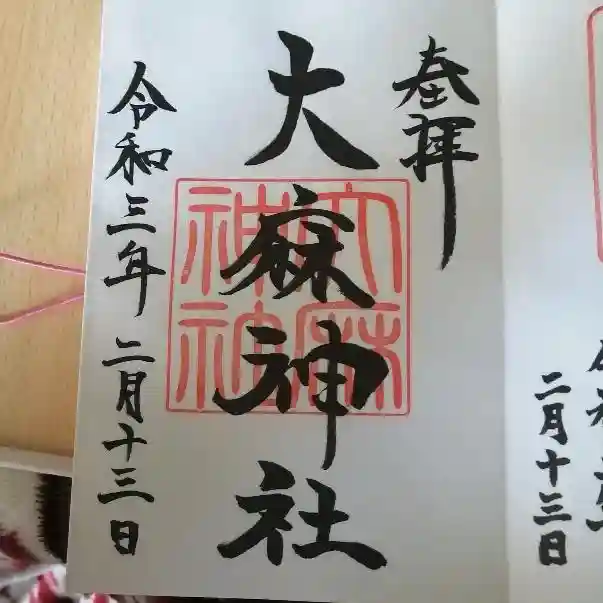 奉拝
大麻神社
令和三年二月十三日
大麻
神社
二月十三日